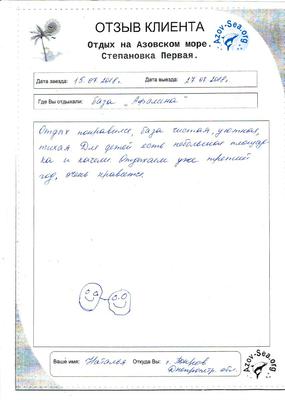 ОТЗЫВ КЛИЕНТА
Отдых на Азовском море.
Степановка Первая.
Azov-Sea.org
Дата заезда: 15.07.2018г. Дата выезда: 27.07.2018г.
Где Вы отдыхали: база "Афалина"
Отдых понравился, база чистая, уютная,
тихая Для детей есть небольшая площад-
ка и качели. Отдыхаем уже третий
год, очень нравится.
Ваше имя: Наталья Откуда Вы: г.
Днепропетр. обл.
Azov-Sea.org